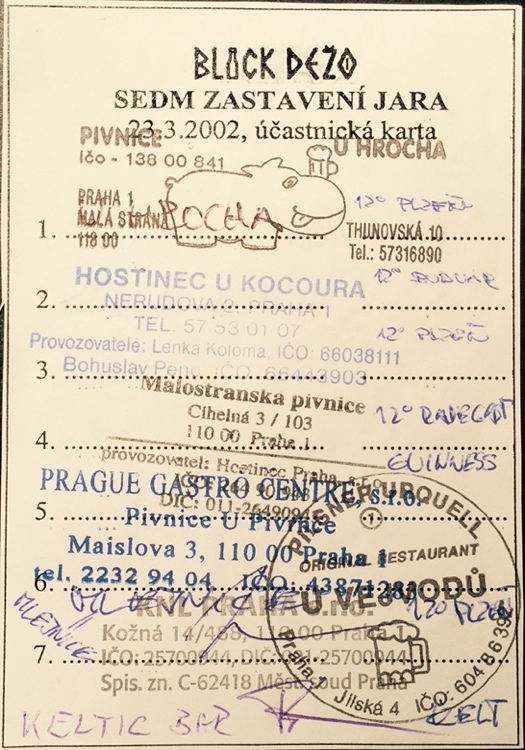 BLOCK DEŽO
SEDM ZASTAVENÍ JARA
23.3.2002, účastnická karta
PIVNICE U HROCHA
Ičo - 138 00 841
PRAHA 1
MALÁ STRANA
118 00
U HROCHA
12° PLZEŇ
THUNOVSKÁ 10
Tel.: 57316890
1.
HOSTINEC U KOCOURA
12° BUDVAR
2.
NERUDOVA 2. PRAHA 1
TEL. 57 53 01 07
12° PLZEŇ
Provozovatele: Lenka Koloma, IČO: 66038111
Bohuslav Penc, IČO: 66443903
3.
Malostranska pivnice
Cihelná 3 / 103
12° RADEGAST
110 00 Praha 1
4.
provozovatel: Hostinec Praha, s.r.o.
GUINNESS
PRAGUE GASTRO CENTRE, s.r.o.
DIČ: 011-26490943
5.
Pivnice U Pivrnce
Maislova 3, 110 00 Praha 1
tel. 2232 94 04 IČO: 43871283
6.
PILSNER URQUELL
1
ORIGINAL RESTAURANT
U VEJVODŮ
Praha 1, Jilská 4 IČO: 604 86 39
12° PLZEŇ
HLEJTNICE
KNL PRAHA
Kožná 14/488, 110 00 Praha 1
7.
IČO: 25700944, DIČ: 001-25700944
Spis. zn. C-62418 Měst. soud Praha
KELTIC BAR
KELT